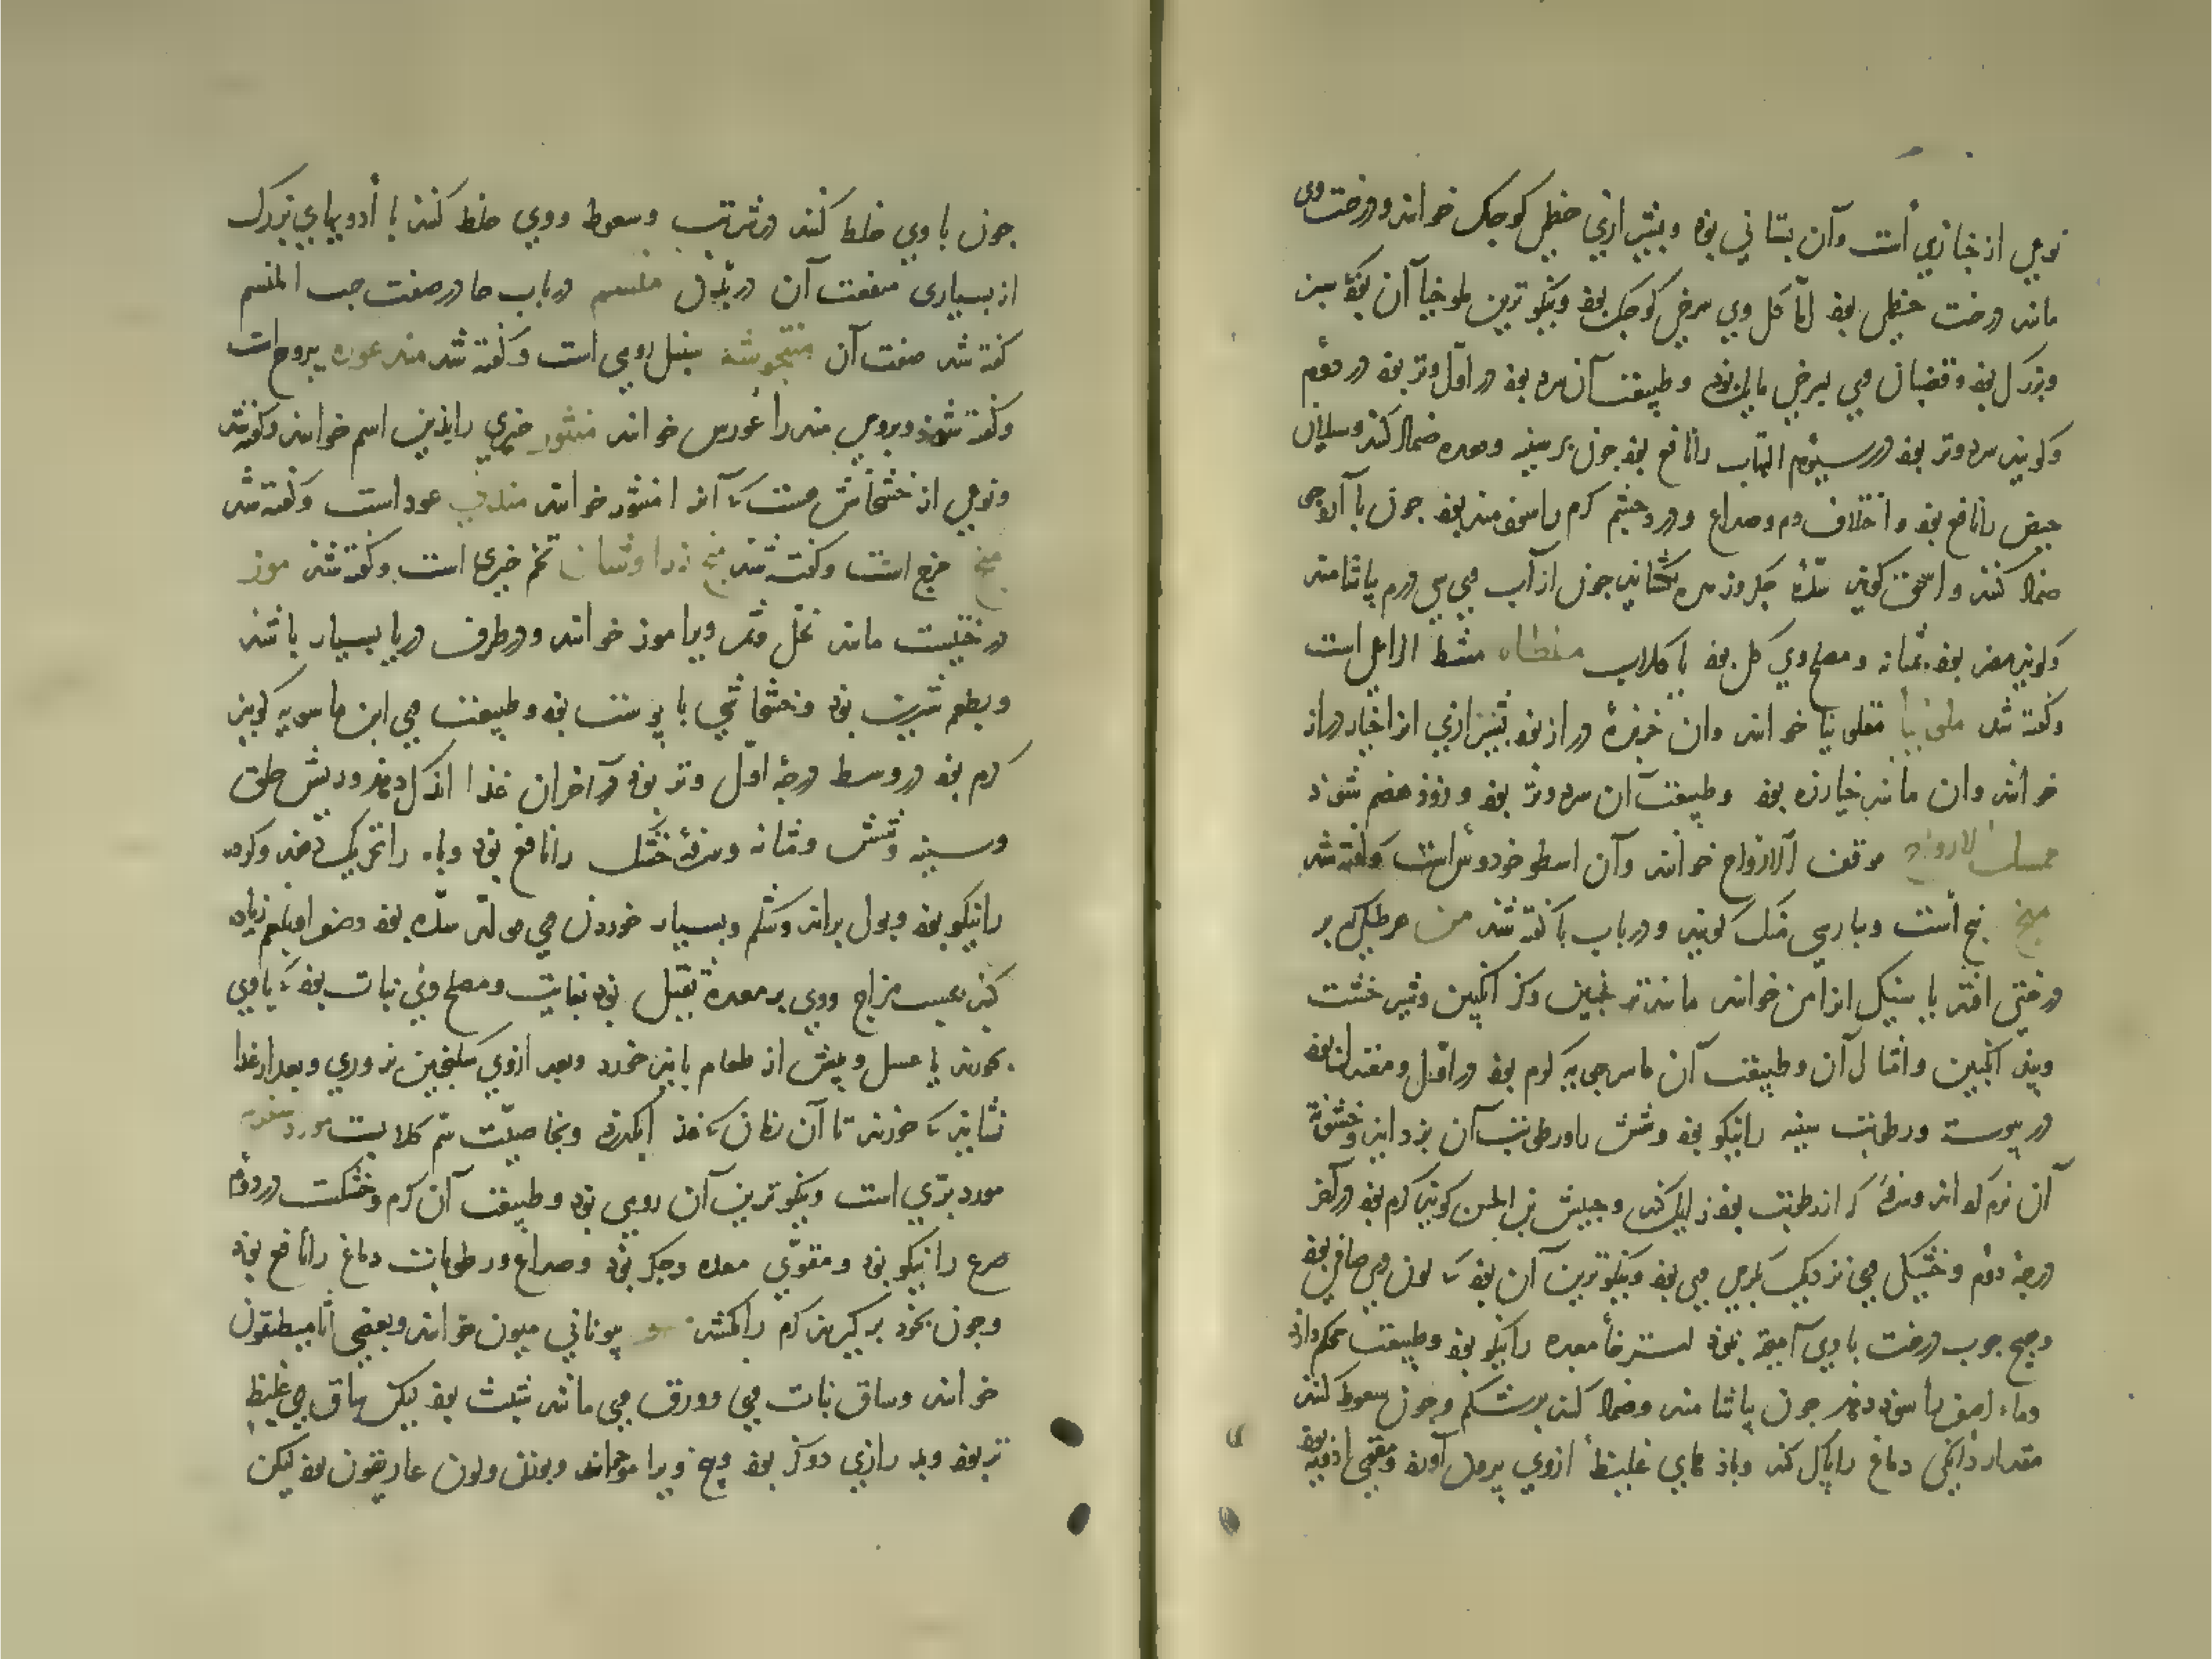 نوعی از خبازی است و آن بستانی بود و بشیرازی خطمی کوچک خوانند و درخت وی
مانند درخت خطمی بود اما کل وی سرخی کوچک بود و نیکوترین ملوخیا آن بود که سبز
و بزرک بود و قضبان وی بسرخی مایل بود و طبیعت آن سرد بود در اول و تر بود در دوم
و کویند سرد و تر بود در سیوم التهاب را نافع بود چون بر سینه و معده ضماد کنند و سیلان
حیض را نافع بود و اختلاف دم و صداع و درد چشم کرم را سودمند بود چون با آرد جو
ضماد کنند و اسحق کوید سده جکر و زهره بکشاید چون از آب وی سی درم بیاشامند
و کویند مضر بود بمثانه و مصلح وی کل بود با کلاب مشط الراعی است
و کفته شد ملونیا خوانند و آن خربزه دراز بود بشیرازی انرا خیار دراز
خوانند و آن مانند خیارزه بود و طبیعت آن سرد و تر بود و زود هضم شود
ممسک الارواح موقف الارواح خوانند و آن اسطوخودوس است و کفته شد
مج بج است و بپارسی منک کویند و در باب با کفته شد من هر طلی که بر
درختی افتد یا سنکی انرا من خوانند مانند ترنجبین و کز انکبین و شیر خشت
و بید انکبین و امثال آن و طبیعت آن ماسرجویه کرم بود در اول و معتدل بود
در یبوست و رطوبت سینه را نیکو بود و شش را و رطوبت آن بزداید و خشونت
آن نرم کرداند و سرفه که از رطوبت بود زایل کند و حبیش بن الحسن کوید کرم بود در آخر
درجه دوم و خشکی وی نزدیک بکرمی وی بود و نیکوترین آن بود که لون وی صافی بود
و هیچ چوب درخت با وی آمیخته نبود استرخا معده را نیکو بود و طبیعت محکم دارد
و ماء اصفر را سود دهد چون بیاشامند و ضماد کنند بر شکم و چون سعوط کنند
مقدار دانکی دماغ را پاک کند و بادهای غلیظ ازوی بیرون آورد و مقوی ادویه بود
چون با وی خلط کنند در شربت و سعوط و وی خلط کنند با ادویهای بزرک
از بسیاری منفعت آن در بدن منسم در باب حا در صفت حب المنسم
کفته شد صفت آن منتجوشه سنبل رومی است و کفته شد مندغوره یبروح است
و کفته شود و برومی مندراغورس خوانند منثور خیری را بدین اسم خوانند و کفته شد
و نوعی از خشخاش هست که آنرا منثور خوانند مندلی عود است و کفته شد
مج مرج است و کفته شد تخم خیری است و کفته شد موز
درختیست مانند نخل و ثمر ویرا موز خوانند و در طرف دریا بسیار باشد
و بطعم شیرین بود و خشخاشی با پوست بود و طبیعت وی ابن ماسویه کوید
کرم بود در وسط درجه اول و تر بود در آخر آن غذا اندک دهد و ریش حلق
و سینه و شش و مثانه و سرفه خشک را نافع بود و باه را تحریک دهد و کرده
را نیکو بود و بول براند و شکم و بسیار خوردن وی مولد سده بود و صفرا و بلغم زیاده
کند بحسب مزاج و وی بر معده ثقیل بود بغایت و مصلح وی نبات بود که با وی
بخورند یا عسل و پیش از طعام باید خورد و بعد ازوی سکنجبین بزوری و بعد از غذا
نشاید که خورند تا آن زمان که غذا بکذرد و بخاصیت سم کلابست مورد سفرم
مورد بری است و نیکوترین آن رومی بود و طبیعت آن کرم و خشکست در دوم
صرع را نیکو بود و مقوی معده و جکر بود و صداع و رطوبات دماغ را نافع بود
و چون بخود بر کیرند کرم را بکشد مو بیونانی میون خوانند و بعضی اثامیطیقون
خوانند و ساق نبات وی و ورق وی مانند شبث بود لیکن ساق وی غلیظ
تر بود و بد رازی دو کز بود و بیخ ویرا مو خوانند و بوزن و لون غاریقون بود لیکن